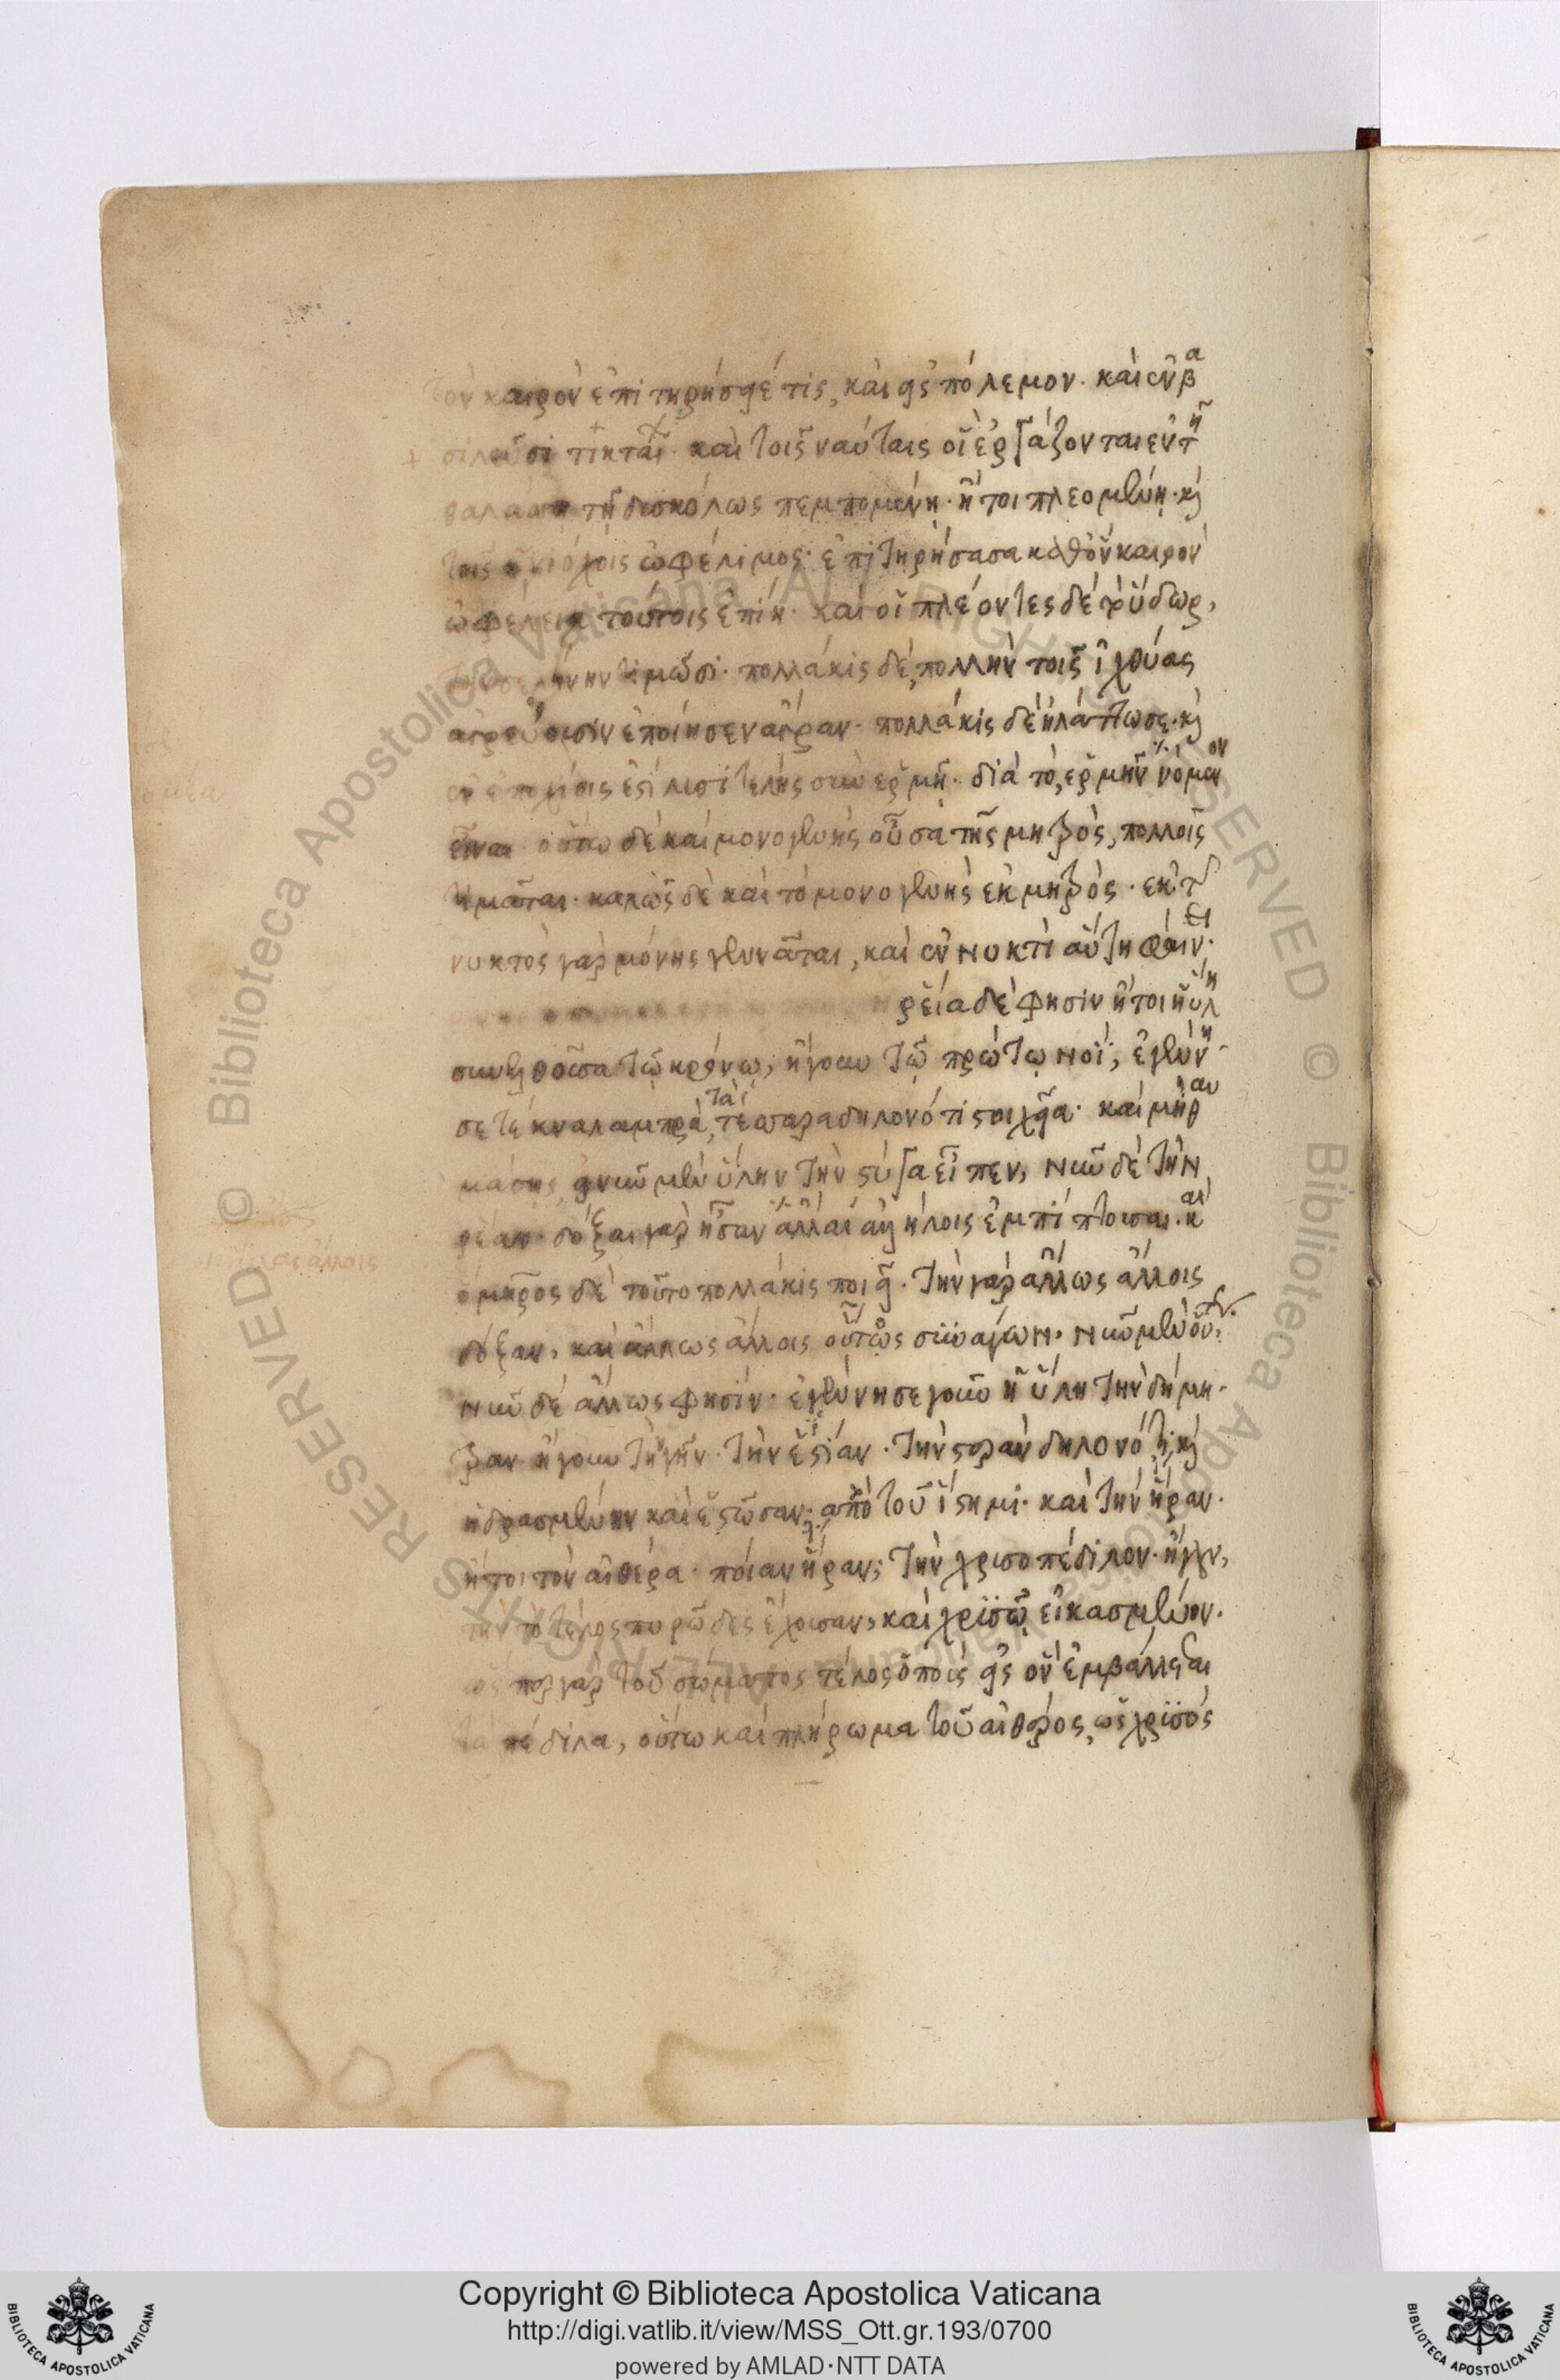 τὸν καιρὸν ἐπιτηρήσειέ τις, καὶ εἰς πόλεμον. καὶ ἐν βα
σιλεῦσι τίκται. καὶ τοῖς ναύταις οἳ ἐργάζονται ἐν τῆ
θαλάσση τῆ δυσκόλως πεμπομένη. ἤτοι πλεομένη. κ
τοῖς ἡνιόχοις ὠφέλιμος. ἐπιτηρήσασα καθ' ὃν καιρὸν
ὠφέλεια τούτοις ἐπίη. καὶ οἱ πλέοντες δὲ ὕδωρ,
τιμῶσι. πολλάκις δὲ, πολλὴν τοῖς ἰχθύας
ἐποίησεν ἄγραν. πολλάκις δὲ ἠλάττωσε. κ
ἑρμῆ. διὰ τὸ, ἑρμῆν νόμιον
εἶναι οὕτω δὲ καὶ μονογενὴς οὖσα τῆς μητρὸς, πολλοῖς
τιμᾶται. καλῶς δὲ καὶ τὸ μονογενὴς ἐκ μητρὸς. ἐκ τ
νυκτὸς γὰρ μόνης γεννᾶται, καὶ ἐν νυκτὶ αὕτη φαίνει.
ῥεία δέ φησιν ἤτοι ἡ ὕλη
συνελθοῦσα τῶ κρόνω, ἤγουν τῶ πρώτω νοΐ, ἐγένη
σε τέκνα λαμπρὰ, τὰ τέσσαρα δηλονότι στοιχεῖα. καὶ μὴ θαυ
μάσης, εἰ νῦν μὲν ὕλην τὴν στύγα εἶπεν, νῦν δὲ τὴν
ῥέαν. δόξαι γὰρ ἦσαν ἄλλαι ἀλλήλοις ἐμπίπτουσαι. καὶ
ὅμηρος δὲ τοῦτο πολλάκις ποιεῖ. τὴν γὰρ ἄλλως ἄλλοις
δόξαν, καὶ ἄλλως ἄλλοις οὕτως συνάγων. νῦν μὲν οὕτως,
νῦν δὲ ἄλλως φησίν. ἐγέννησε γοῦν ἡ ὕλη τὴν δήμη
τραν ἤγουν τὴν γῆν. τὴν ἑστίαν. τὴν στερεὰν δηλονότι, κ
ἡδρασμένην καὶ ἑστῶσαν. ἀπὸ τοῦ ἵστημι. καὶ τὴν ἥραν.
ἤτοι τὸν αἰθέρα. ποίαν ἥραν; τὴν χρυσοπέδιλον. ἤγουν,
τὴν τὸ τέλος πυρῶδες ἔχουσαν, καὶ χρυσῶ εἰκασμένον.
ὥσπερ γὰρ τοῦ σώματος τέλος ὁ ποὺς εἰς ὃν ἐμβάλλεται
τὰ πέδιλα, οὕτω καὶ πλήρωμα τοῦ αἰθέρος, ὡς χρυσὸς
Copyright © Biblioteca Apostolica Vaticana
http://digi.vatlib.it/view/MSS_Ott.gr.193/0700
powered by AMLAD·NTT DATA